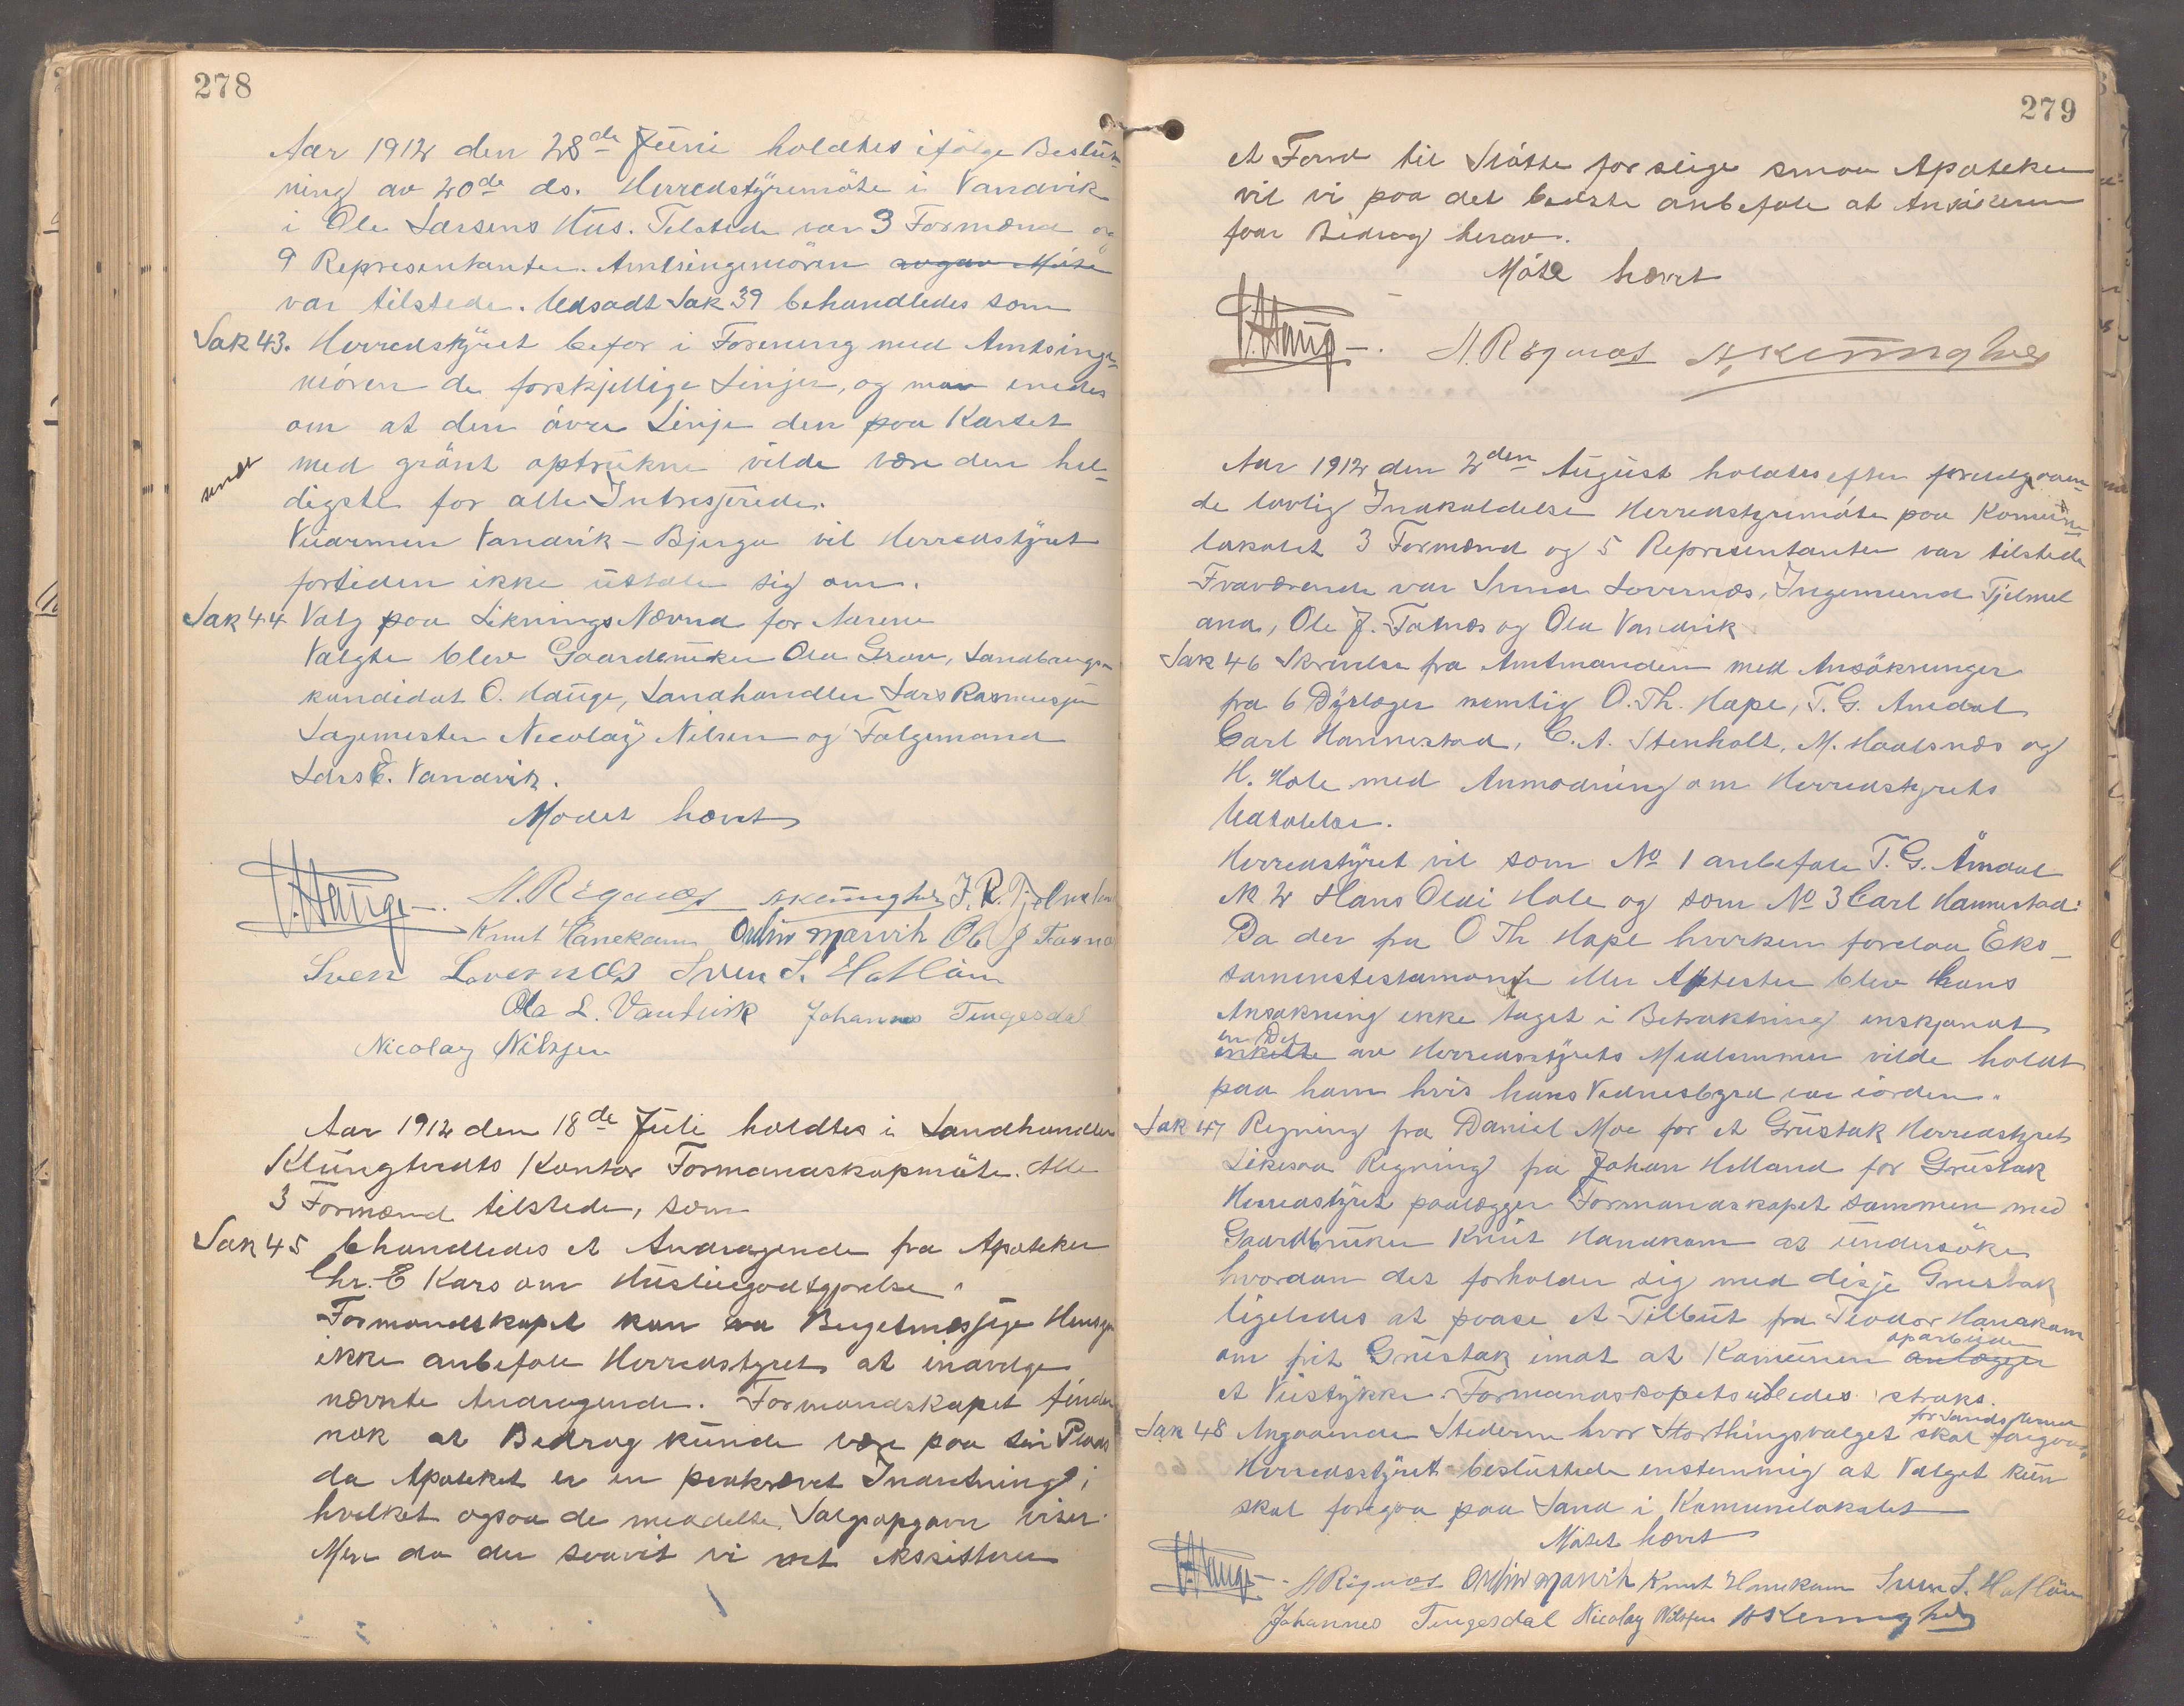 278
Aar 1912 den 28de Juni holdtes ifölge Beslut-
ning av 20de ds. Herredstÿremöte i Vandvik
i Ole Larsens Hus. Tilstede var 3 Formænd og
9 Representanter. Amtsingeniören avgav Möte
var tilstede. Udsadt Sak 39 behandledes som
Sak 43. Herredstÿret befor i Forening med Amtsinge-
niören de forskjellige Linjer, og man enedes
om at den övre Linje den paa Kartet
sendt
med grönt optrukne vilde være den hel-
digste for alle Intresjerede.
Veiarmen Vandvik - Bjerga vil Herredstÿret
fortiden ikke uttale sig om.
Sak 44 Valg paa Liknings Nævnd for Aarene
Valgte blev Gaardbruker Ola Grov, Landbrugs-
kandidat O. Hauge, Landhandler Lars Rasmusjen
Lagemester Nicolaÿ Nilsen og Falgemand
Lars E. Vandvik.
Mödet hævet
O. Hauge. H. Rögnæs A Klungtvedt I. R. Tjelmeland
Knut Hanekam Ordin Marvik Ole J Fatnæs
Sven Lovernæs Sven S. Hatlöen
Ola L. Vandvik Johannes Tengesdal
Nicolay Nilsjen
Aar 1912 den 18de Juli holdtes i Landhandler
Klungtvedts Kontor Formandskapmöte. Alle
3 Formænd tilstede, som
Sak 45 behandledes et Andragende fra Apoteker
Chr. E Kars om Husleiegodtgjørelse.
Formandskapet kan av Bugetmæsjige Hensyn
ikke anbefale Herredstyret at indvilge
nævnte Andragende. Formandskapet finder
nok at Bidrag kunde være paa sin Plads
da Apoteket er en paakrævet Indretning i
hvilket ogsaa de meddelte Salgsopgaver viser.
Men da der saavit vi vet eksisterer
279
et Fond til Stötte for slige smaa Apoteker
vil vi paa det bedste anbefale at Ansökeren
faar Bidrag herav.
Möte hævet
O. Hauge. H. Rögnæs A Klungtvedt
Aar 1912 den 2den August holdtes efter foregaaen-
de lovlig Indkaldelse Herredstyremöte paa Komune
lokalet 3 Formænd og 5 Representanter var tilstede
Fraværende var Svend Lovernæs, Ingemund Tjelmel
and, Ole J. Fatnæs og Ola Vandvik
Sak 46 Skrivelse fra Amtmanden med Ansökninger
fra 6 Dÿrlæger nemlig O. Th. Hope, T. G. Amdal
Carl Hannestad, C. A. Stenholt, M. Haalsnæs og
H. Hole med Anmodning om Herredstyrets
Udtalelse.
Herredstÿret vil som No 1 anbefale T. G. Åmdal
No 2 Hans Olai Hole og som No 3 Carl Hannestad.
Da der fra O Th Hope hverken forelaa Eks-
samenstestamonier eller Attester blev hans
Ansökning ikke taget i Betraktning enskjøndt
en Del
enkelte av Herredsstÿrets Medlemmer vilde holdt
paa ham hvis hans Vidnesbyrd var iorden.
Sak 47 Regning fra Daniel Moe for et Grustak Herredstyret
Likesaa Regning fra Johan Helland for Grustak
Herredstÿret paalægger Formandskapet sammen med
Gaardbruker Knut Hanakam at undersöke
hvordan det forholder sig med disje Grustak
ligeledes at paase et Tilbut fra Teodor Hanakam
om frit Grustak imot at Komunen oparbeider anlægger
et Veistÿkke. Formandskapet utledes straks.
Sak 48 Angaaende Stederne hvor Storthingsvalget for Sands Komune skal foregaa
Herredsstÿret besluttede enstemmig at Valget kun
skal foregaa paa Sand i Komunelokalet
Mötet hævet
O. Hauge. H Rögnæs Ordin Marvik Knut Hanekam Sven S. Hatlöen
Johannes Tengesdal Nicolay Nilsjen A Klungtvedt